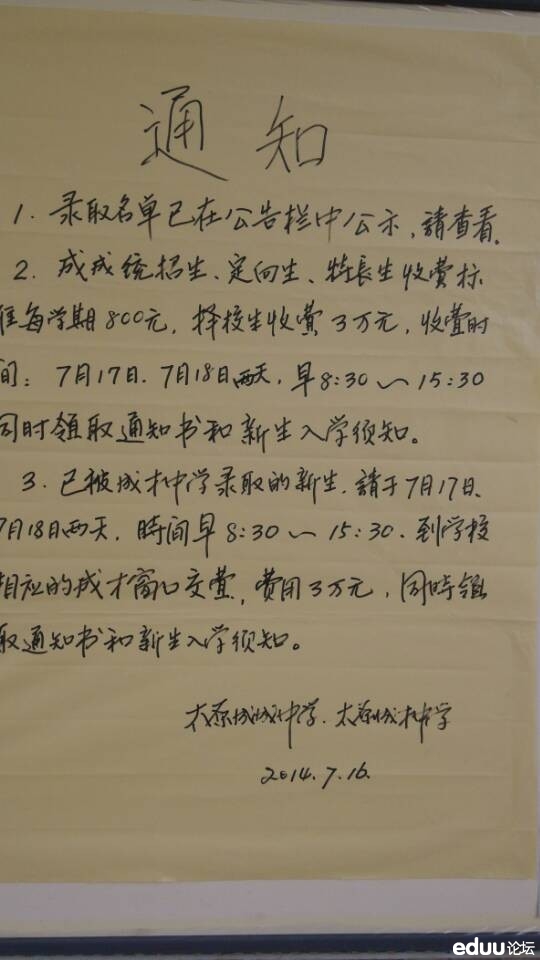 通知
1. 录取名单已在公告栏中公示,請查看。
2. 成成统招生、定向生、特長生收费标
准每学期800元,择校生收费3万元,收费时
间:7月17日.7月18日两天,早8:30~15:30
同时领取通知书和新生入学须知。
3. 已被成才中学录取的新生,請于7月17日、
7月18日两天,時间早8:30~15:30.到学校
相应的成才窗口交费,费用3万元,同時领
取通知书和新生入学须知。
太原成成中学.太原成才中学
2014.7.16.
eduu论坛